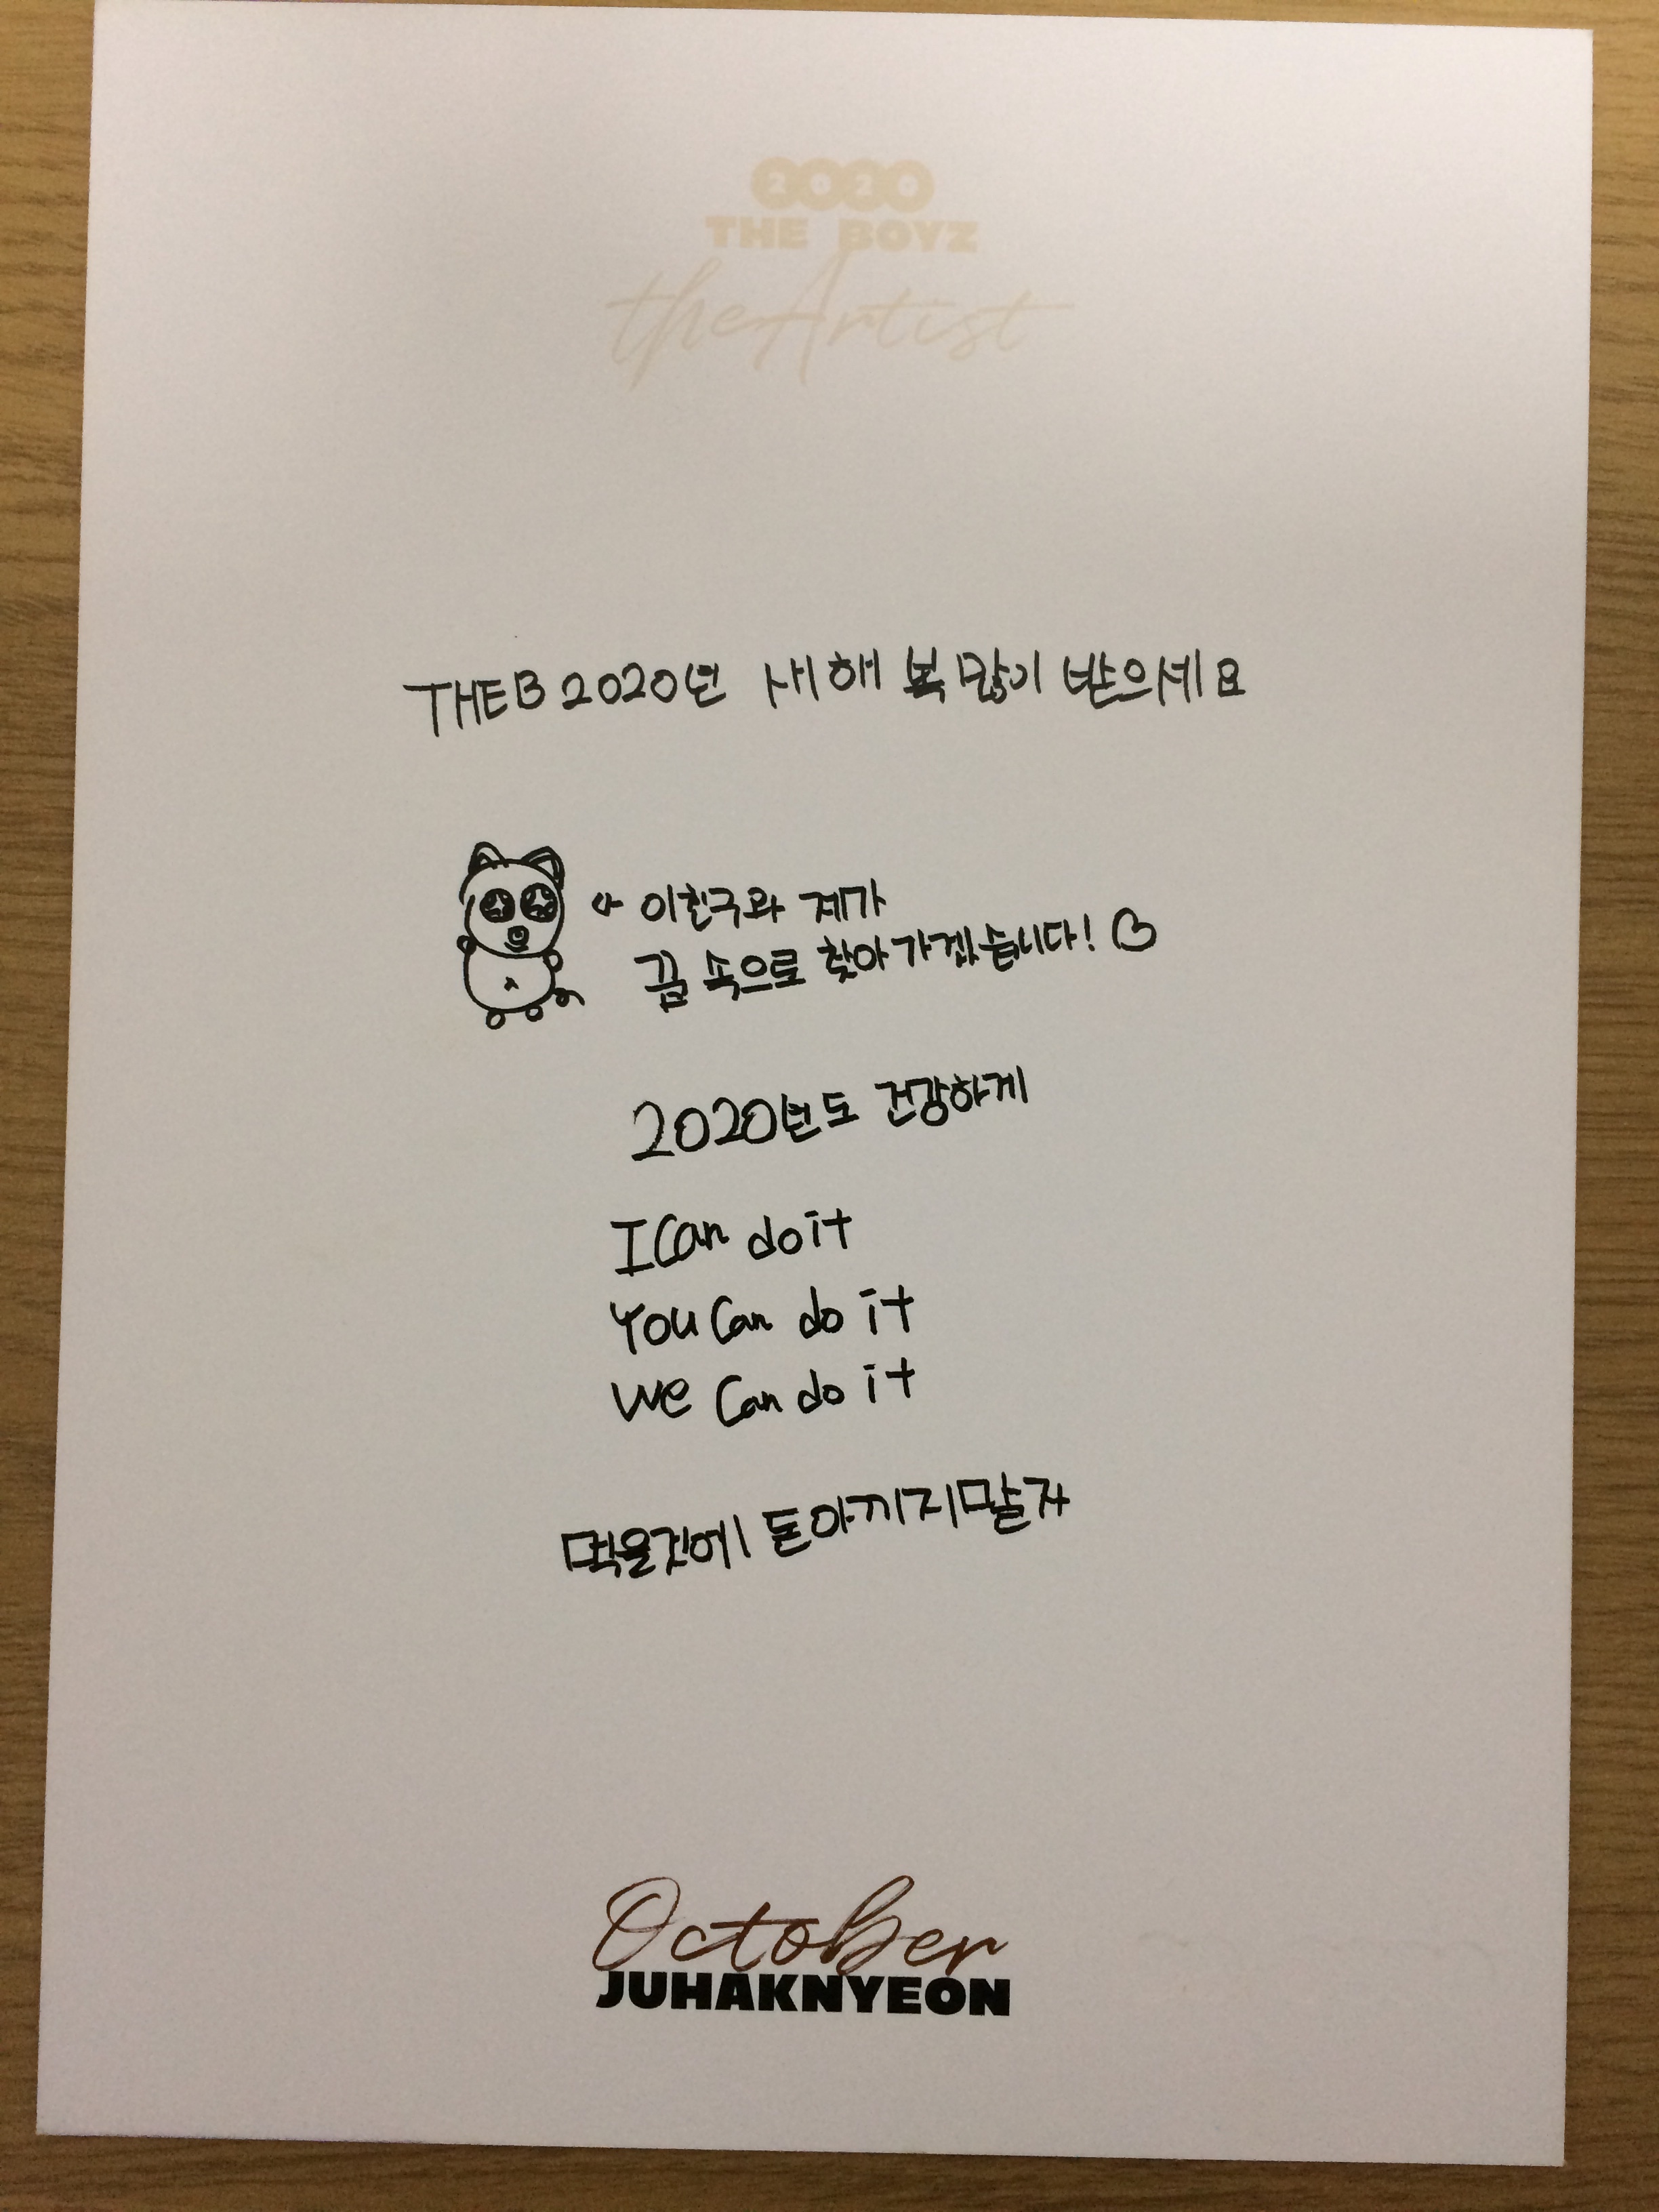 2020
THE BOYZ
the Artist
THEB 2020년 새해 복 많이 받으세요
이친구와 제가
꿈 속으로 찾아가겠습니다!
2020년도 건강하게
I Can do it
You Can do it
We Can do it
먹을것에 돈아끼지말자
October
JUHAKNYEON